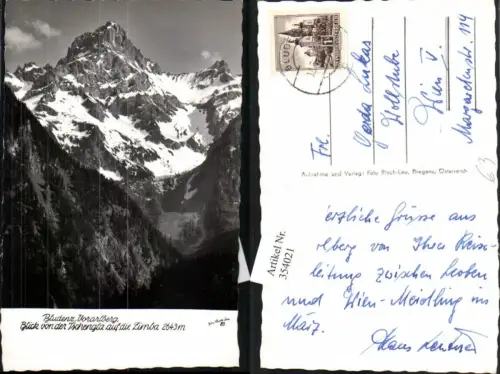 Bludenz, Vorarlberg.
Blick von der Tschengla auf die Zimba 2643m
BLUDE
Frl.
Gerda Lukas
Wollstube
Wien V.
Margaretenstr. 114
63
Aufnahme und Verlag: Foto Risch-Lau, Bregenz, Österreich
Artikel Nr.
354021
erzliche Grüsse aus
lberg von Ihrer Reise-
leitung zwischen Leoben
und Wien-Meidling im
März.
Hans